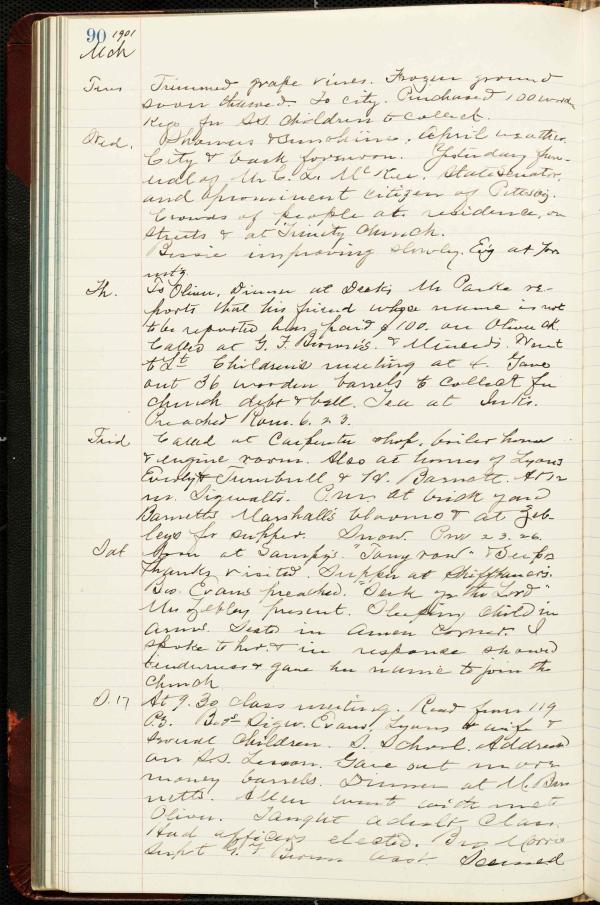 90 1901
Mch
Tues Trimmed grape vines. Frozen ground
soon thawed. To city. Purchased 100 wooden
kegs for S.S. Children to collect.
Wed. Showers & sunshine, April weather.
City & back forenoon. Yesterday fun-
eral of Mr C. L. McKee, State Senator,
and a prominent citizen of Pittsbg.
Crowds of people at residence, on
streets & at Trinity Church.
Bessie improving slowly. Ev'g at
Th. To Oliver, Dinner at Deeks Mr Parke re-
ports that his friend whose name is not
to be reported has paid $100. on Oliver Ch.
Called at G. F. Brown's & Minerds. Went
to Lt Children's meeting at 4. Gave
out 36 wooden barrels to collect for
church debt & bell. Tea at Ink's.
Preached Rom. 6. 23.
Frid Called at Carpenter shop, boiler house
& engine room. Also at homes of Lyons
& Turnbull & W. Barnett. At
Sigwalts. P.m. at brick yard
Barnetts Marshall's & at Zeb-
leys for supper. Snow. 23. 26.
Sat Noon at "Tony row" &
Hanks visited. Supper at
Bro. Evans preached. "Seek ye the Lord"
Mrs Zebley present. Sleeping child in
arms. Seated in amen corner. I
spoke to her & in response showed
tenderness & gave her name to join the
church
S. 17 At 9.30 class meeting. Read from 119
Ps. Bros Sigw. Evans, Lyons & wife &
several children. S. School. Address
on S.S. Lesson. Gave out more
money barrels. Dinner at M. Bar
netts. Allen went with me to
Oliver. Taught adult class.
Had officers elected. Bro Morris
Supt G. F Brown asst. Seemed